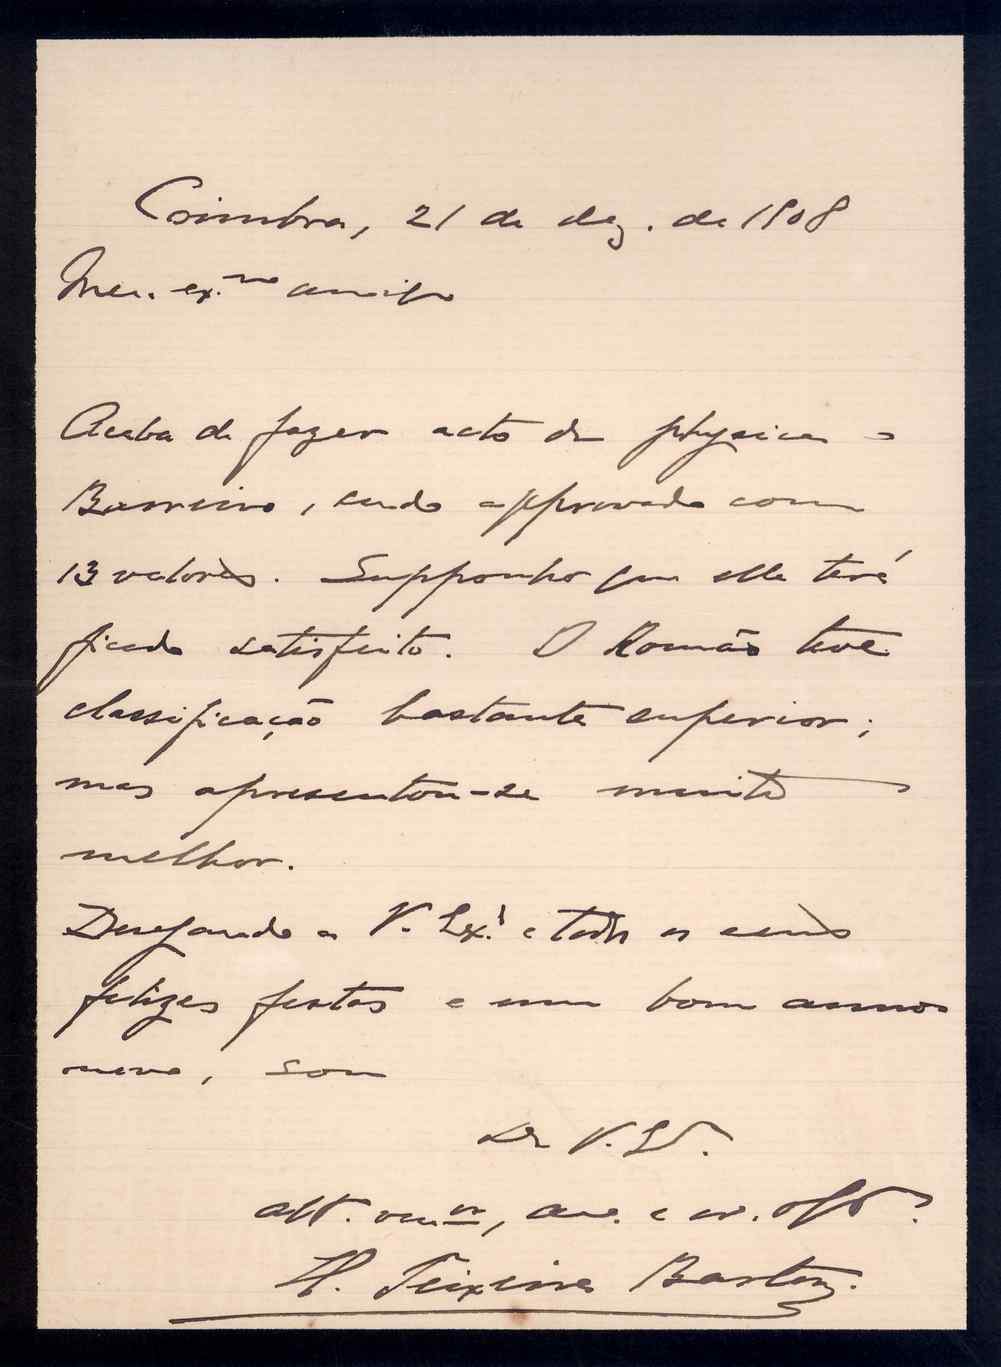 Coimbra, 21 de dez. de 1908
Meu ex.mo amigo
Acaba de fazer acto de physica o
Barreiro, sendo approvado com
13 valores. Supponho que elle terá
ficado satisfeito. O Romão teve
classificação bastante superior;
mas apresentou-se muito
melhor.
Desejando a V. Ex.ª e todos os seus
felizes festas e um bom anno
novo, sou
De V. Ex.ª
att. ven.or, am. e
H. Teixeira Bastos.